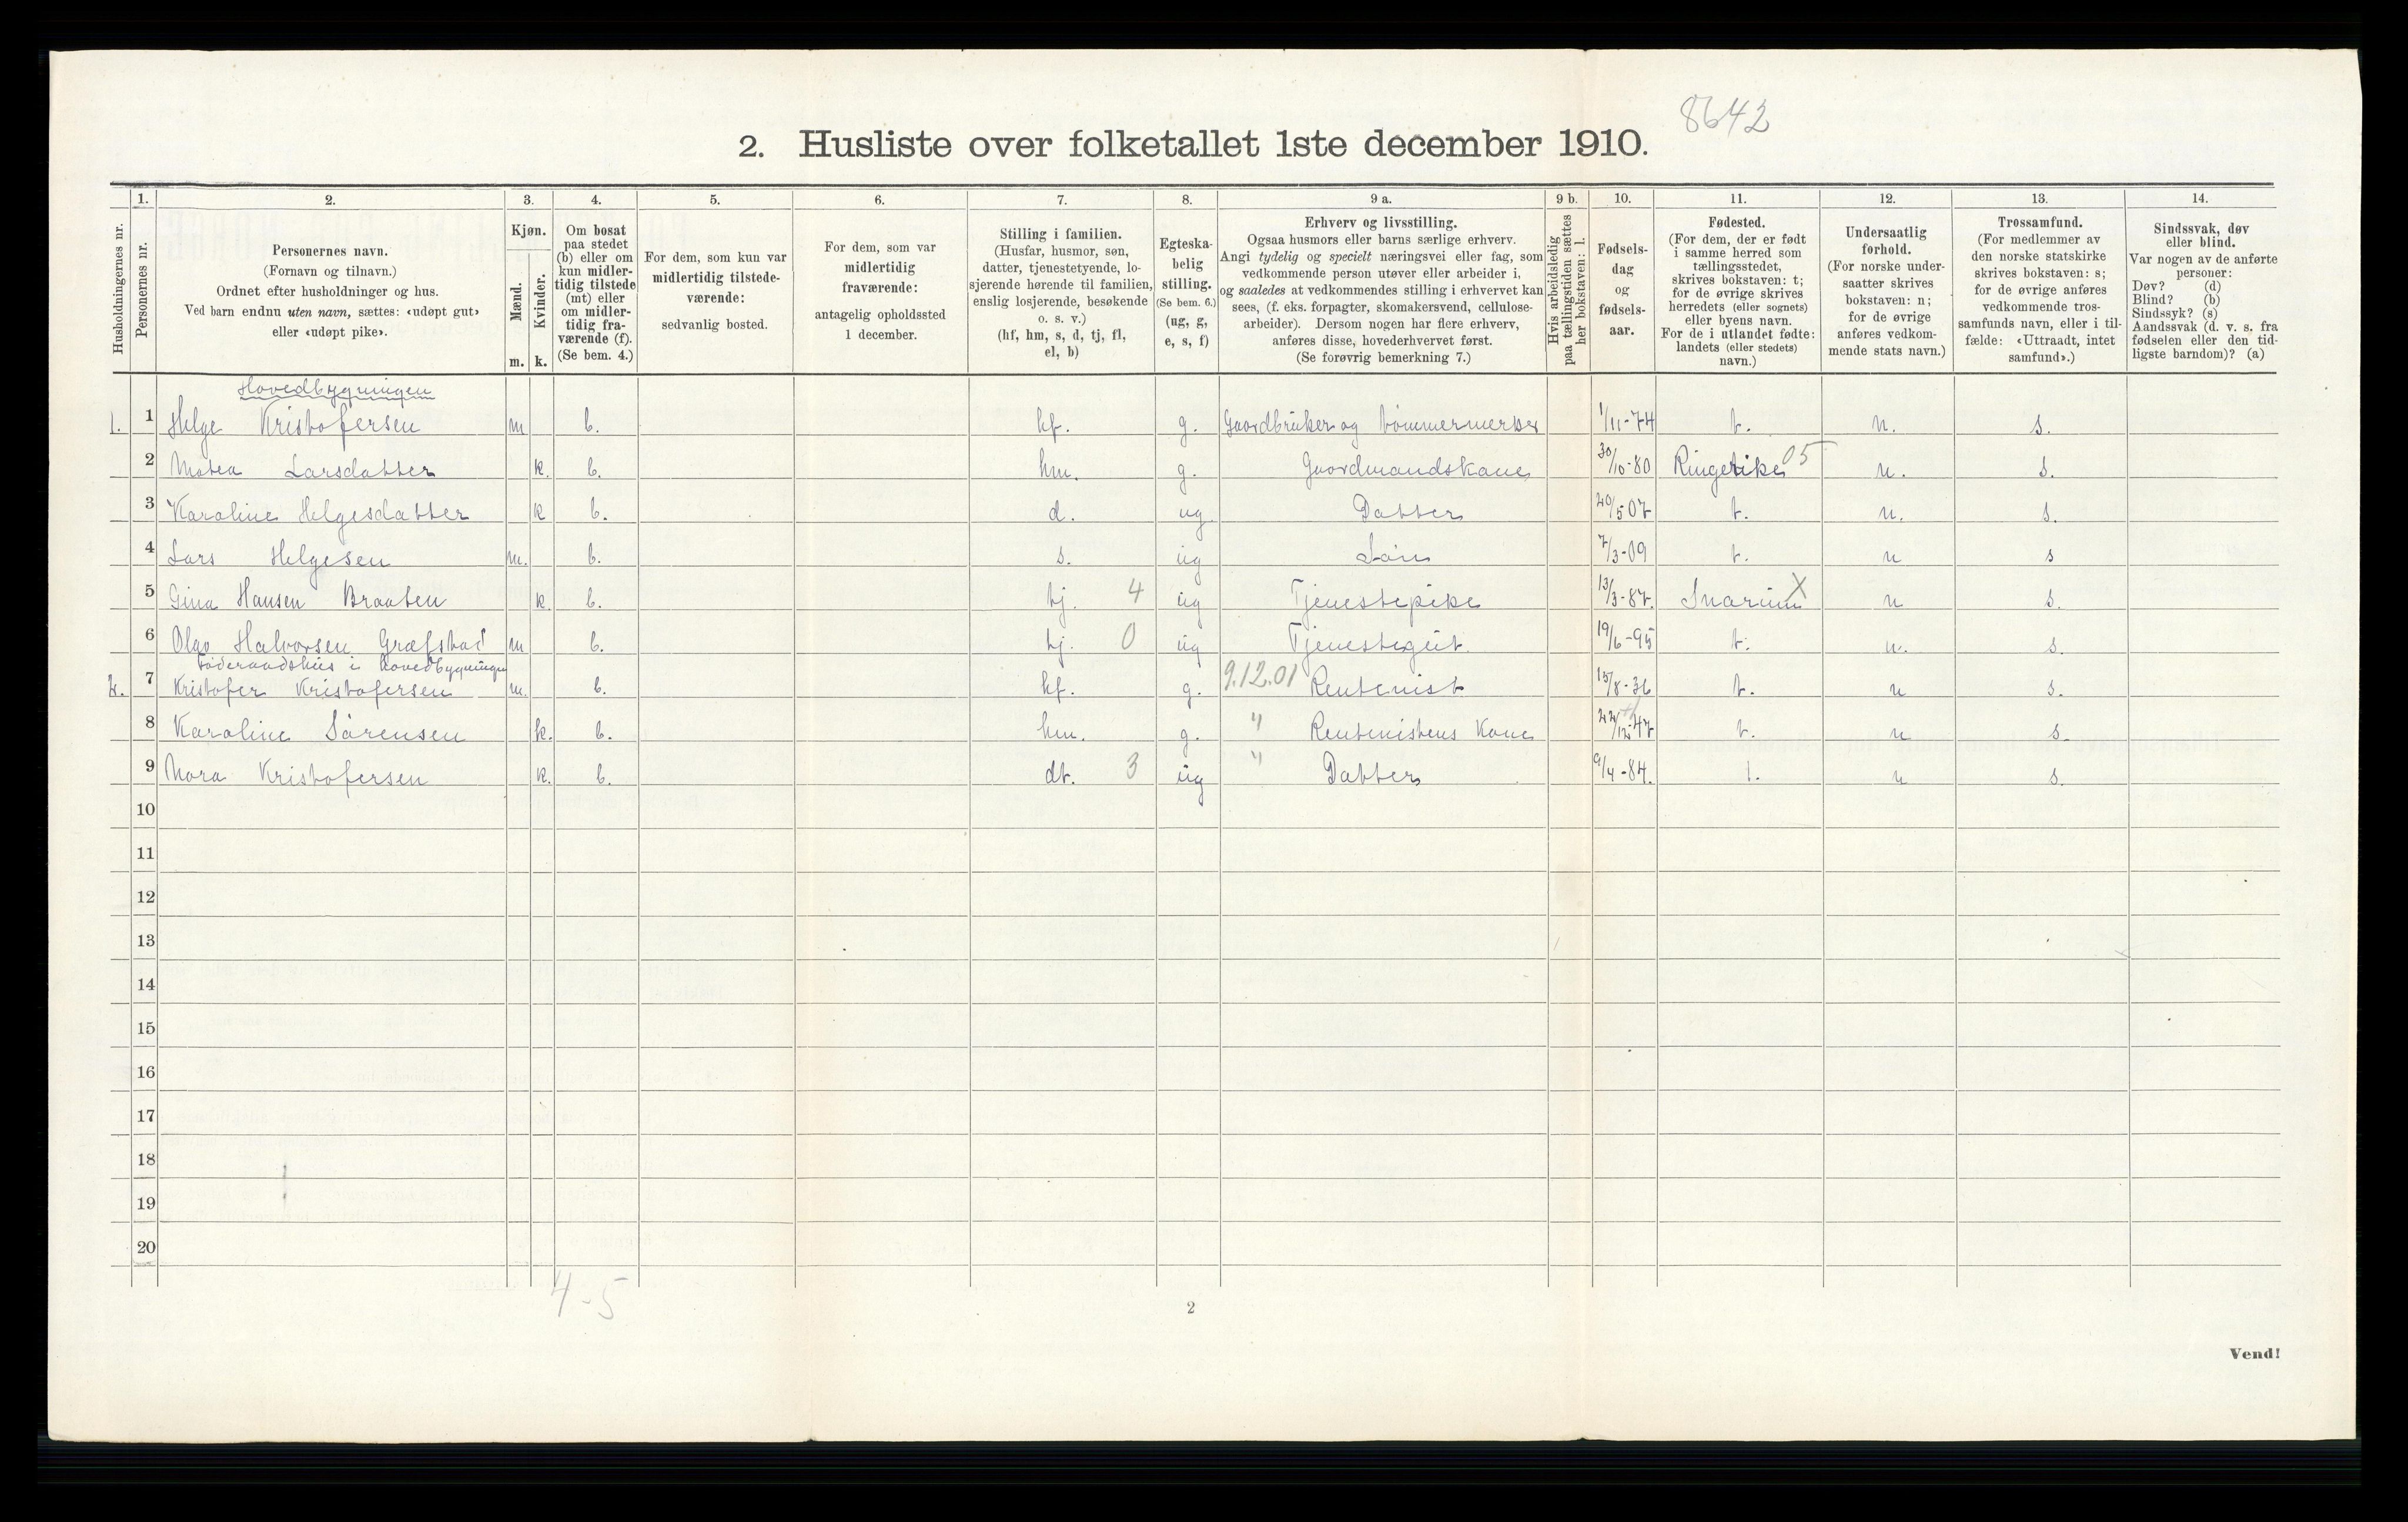 8642
2. Husliste over folketallet 1ste december 1910.
Husholdningernes nr.
1. Personernes nr.
2. Personernes navn.
(Fornavn og tilnavn.)
Ordnet efter husholdninger og hus.
Ved barn endnu uten navn, sættes: «udøpt gut»
eller «udøpt pike».
3. Kjøn.
Mænd. m.
Kvinder. k.
4. Om bosat
paa stedet
(b) eller om
kun midler-
tidig tilstede
(mt) eller
om midler-
tidig fra-
værende (f).
(Se bem. 4.)
5. For dem, som kun var
midlertidig tilstede-
værende:
sedvanlig bosted.
6. For dem, som var
midlertidig
fraværende:
antagelig opholdssted
1 december.
7. Stilling i familien.
(Husfar, husmor, søn,
datter, tjenestetyende, lo-
sjerende hørende til familien,
enslig losjerende, besøkende
o. s. v.)
(hf, hm, s, d, tj, fl,
el, b)
8. Egteska-
belig
stilling.
(Se bem. 6.)
(ug, g,
e, s, f)
9 a. Erhverv og livsstilling.
Ogsaa husmors eller barns særlige erhverv.
Angi tydelig og specielt næringsvei eller fag, som
vedkommende person utøver eller arbeider i,
og saaledes at vedkommendes stilling i erhvervet kan
sees, (f. eks. forpagter, skomakersvend, cellulose-
arbeider). Dersom nogen har flere erhverv,
anføres disse, hovederhvervet først.
(Se forøvrig bemerkning 7.)
9 b. Hvis arbeidsledig
paa tællingstiden sættes
her bokstaven: l.
10. Fødsels-
dag
og
fødsels-
aar.
11. Fødested.
(For dem, der er født
i samme herred som
tællingsstedet,
skrives bokstaven: t;
for de øvrige skrives
herredets (eller sognets)
eller byens navn.
For de i utlandet fødte:
landets (eller stedets)
navn.)
12. Undersaatlig
forhold.
(For norske under-
saatter skrives
bokstaven: n;
for de øvrige
anføres vedkom-
mende stats navn.)
13. Trossamfund.
(For medlemmer av
den norske statskirke
skrives bokstaven: s;
for de øvrige anføres
vedkommende tros-
samfunds navn, eller i til-
fælde: «Uttraadt, intet
samfund».)
14. Sindssvak, døv
eller blind.
Var nogen av de anførte
personer:
Døv? (d)
Blind? (b)
Sindssyk? (s)
Aandssvak (d. v. s. fra
fødselen eller den tid-
ligste barndom)? (a)
Hovedbygningen
1. 1 Helge Kristofersen m b. hf. g. Gaardbruker og tømmermerker 1/11-74 t. n. s.
2 Matea Larsdatter k. b. hm. g. Gaardmandskone 30/10-80 Ringerike 05 n. s.
3 Karoline Helgesdatter k b. d. ug Datter 20/5 07 t. n. s.
4 Lars Helgesen m. b. s. ug Søn 7/3-09 t. n s
5 Gina Hansen Braaten k. b. tj. 4 ug Tjenestepike 13/3-87. Snarum X n s.
6 Olav Halvorsen Græfstad m b. tj. 0 ug Tjenestegut 19/6-95 t. n. s.
Føderaadshus i hovedbygningen
2. 7 Kristofer Kristofersen m. b. hf. g. 9.12.01 Rentenist 15/8-36 t. n s.
8 Karoline Sørensen k. b. hm. g. " Rentenistens Kone 22/12-47 t. n s.
9 Nora Kristofersen k. b. dt. 3 ug " Datter 9/4-84. t. n s.
10
11
12
13
14
15
16
17
18
19
20
4-5
2
Vend!